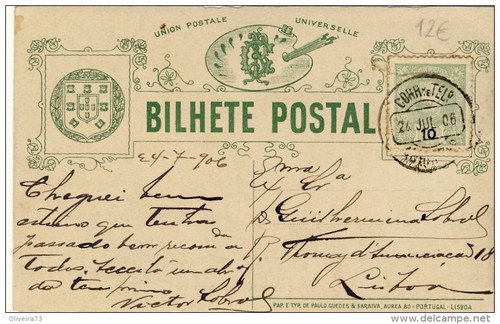 12€
UNION POSTALE UNIVERSELLE
BILHETE POSTAL
CORR. E TELP.
24 JUL 06
10
24-7-906
Cheguei bem
estimo que tenha
passado bem recom.da
a todos. Aceite um abr.o
do teu primo
Victor Sobral
Exma
Sr.a
D. Guilhermina Sobral
R. Thomaz d'Annunciação 18
Lisboa
PAP. E TYP. DE PAULO GUEDES & SARAIVA, AUREA, 80 - PORTUGAL - LISBOA
Oliveira73
delcampe.net